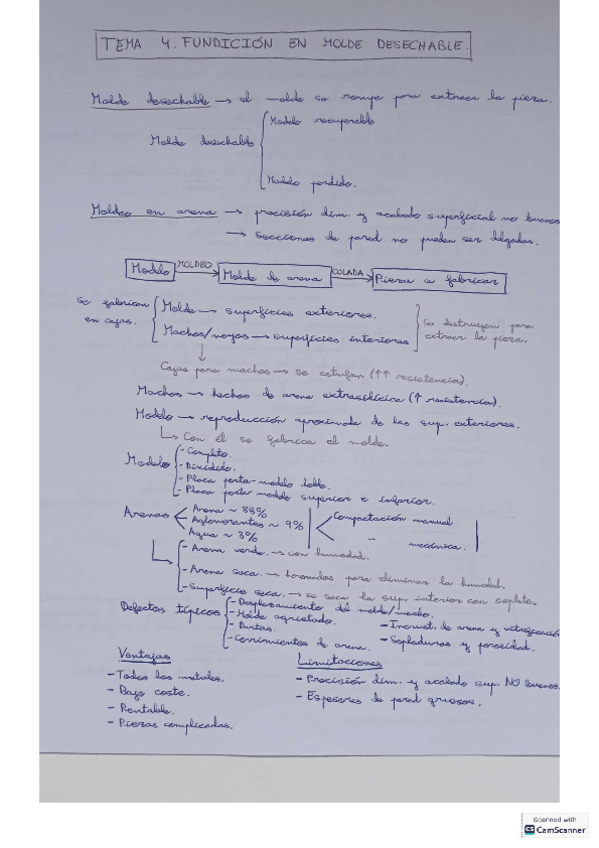 TEMA 4. FUNDICIÓN EN MOLDE DESECHABLE.
Molde desechable → el molde se rompe para extraer la pieza.
Molde desechable
Modelo recuperable
Modelo perdido.
Moldeo en arena → precisión dim. y acabado superficial no buenos
→ secciones de pared no pueden ser delgadas.
Modelo MOLDEO Molde de arena COLADA Pieza a fabricar
Se fabrican en cajas.
Molde → superficies exteriores.
Machos/noyos → superficies interiores
Se destruyen para
extraer la pieza.
Cajas para machos → se estufan (↑↑ resistencia).
Machos → hechos de arena extrasilícica (↑ resistencia).
Modelo → reproducción aproximada de las sup. exteriores.
↳ Con él se fabrica el molde.
Modelo
- Completo.
- Dividido.
- Placa porta-modelo doble.
- Placa porta-modelo superior e inferior.
Arenas
Arena ~ 88%
Aglomerantes ~ 9%
Agua ~ 3%
Compactación manual
" mecánica.
- Arena verde. → con humedad.
- Arena seca. → horneados para eliminar la humedad.
- Superficie seca. → se seca la sup. interior con soplete.
Defectos típicos
- Desplazamiento del molde/macho.
- Molde agrietado.
- Corrimientos de arena.
- Incrust. de arena y vitrificación
- Sopladuras y porosidad.
Ventajas
- Todos los metales.
- Bajo coste.
- Rentable.
- Piezas complicadas.
Limitaciones
- Precisión dim. y acabado sup. NO buenos.
- Espesores de pared gruesos.
Scanned with
CS CamScanner